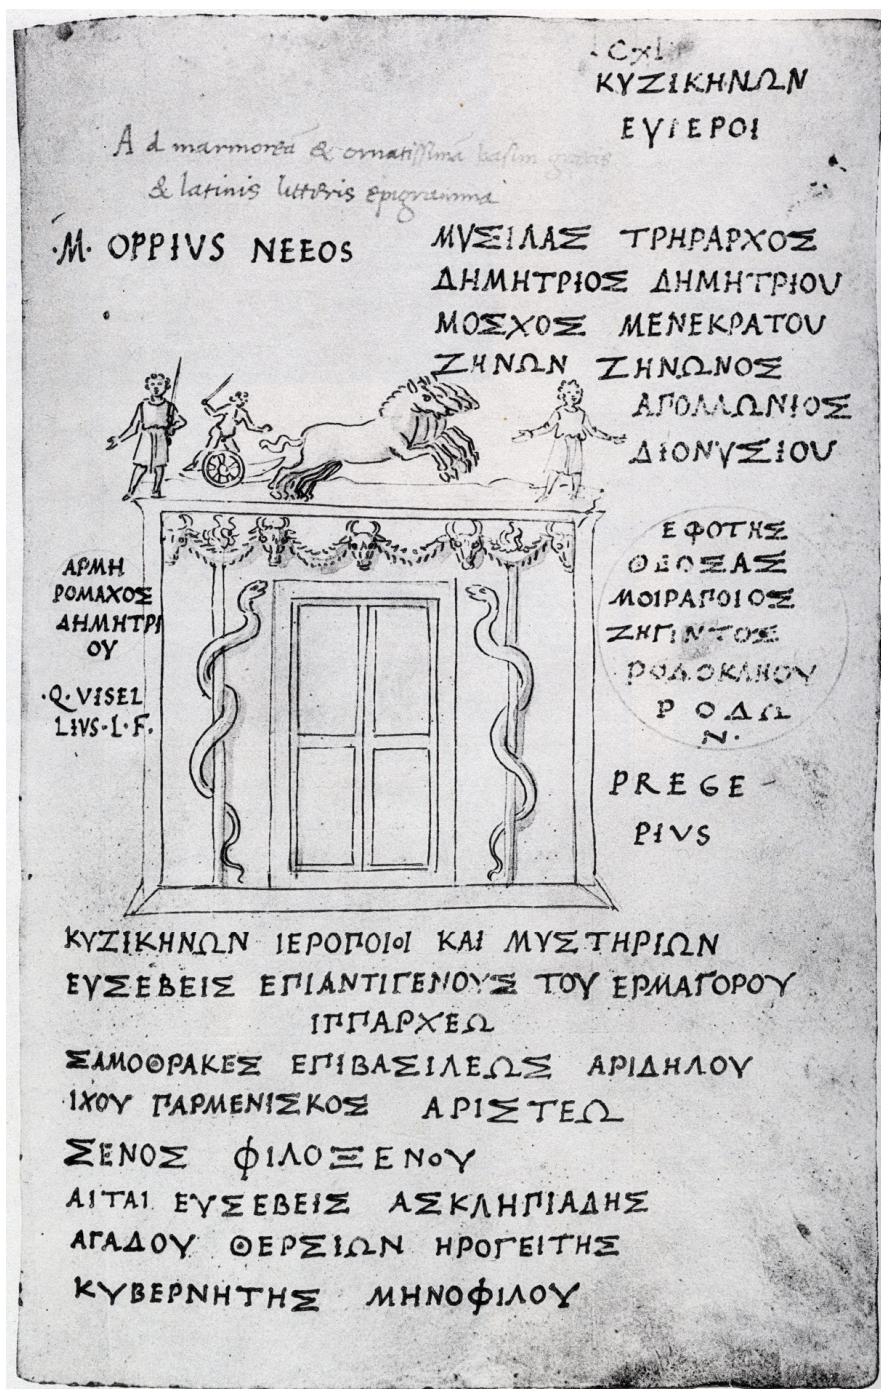 CXL
ΚΥΖΙΚΗΝΩΝ
ΕΥΙΕΡΟΙ
Ad marmoreã & ornatissimã basim
& latinis litteris epigramma
·M· OPPIVS NEEOS
ΜΥΣΙΛΑΣ ΤΡΗΡΑΡΧΟΣ
ΔΗΜΗΤΡΙΟΣ ΔΗΜΗΤΡΙΟΥ
ΜΟΣΧΟΣ ΜΕΝΕΚΡΑΤΟΥ
ΖΗΝΩΝ ΖΗΝΩΝΟΣ
ΑΠΟΛΛΩΝΙΟΣ
ΔΙΟΝΥΣΙΟΥ
ΑΡΜΗ
ΡΟΜΑΧΟΣ
ΔΗΜΗΤΡΙ
ΟΥ
·Q·VISEL
LIVS·L·F.
ΕΦΟΤΗΣ
ΘΕΟΞΑΣ
ΜΟΙΡΑΠΟΙΟΣ
ΡΟΔΟΚΛΗΟΥ
ΡΟΔΩ
Ν·
PREGE
PIVS
ΚΥΖΙΚΗΝΩΝ ΙΕΡΟΠΟΙΟΙ ΚΑΙ ΜΥΣΤΗΡΙΩΝ
ΕΥΣΕΒΕΙΣ ΕΠΙΑΝΤΙΓΕΝΟΥΣ ΤΟΥ ΕΡΜΑΓΟΡΟΥ
ΙΠΠΑΡΧΕΩ
ΣΑΜΟΘΡΑΚΕΣ ΕΠΙΒΑΣΙΛΕΩΣ ΑΡΙΔΗΛΟΥ
ΙΧΟΥ ΠΑΡΜΕΝΙΣΚΟΣ ΑΡΙΣΤΕΩ
ΞΕΝΟΣ ΦΙΛΟΞΕΝΟΥ
ΑΙΤΑΙ ΕΥΣΕΒΕΙΣ ΑΣΚΛΗΠΙΑΔΗΣ
ΑΓΑΔΟΥ ΘΕΡΣΙΩΝ ΗΡΟΓΕΙΤΗΣ
ΚΥΒΕΡΝΗΤΗΣ ΜΗΝΟΦΙΛΟΥ